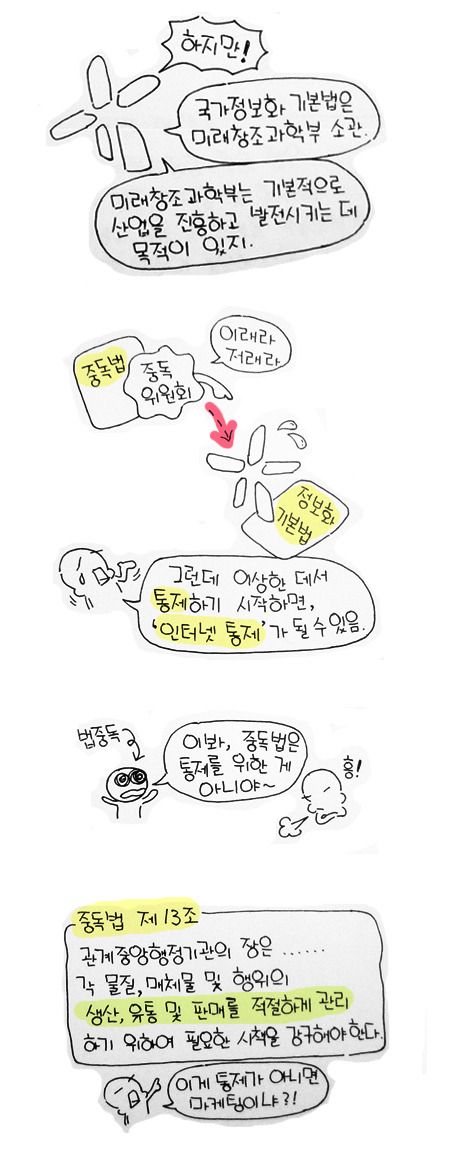 하지만!
국가정보화 기본법은
미래창조과학부 소관.
미래창조과학부는 기본적으로
산업을 진흥하고 발전시키는 데
목적이 있지.
중독법
중독
위원회
이래라
저래라
정보화
기본법
그런데 이상한 데서
통제하기 시작하면,
'인터넷 통제'가 될 수 있음.
법중독
이봐, 중독법은
통제를 위한 게
아니야~
흥!
중독법 제13조
관계중앙행정기관의 장은 ......
각 물질, 매체물 및 행위의
생산, 유통 및 판매를 적절하게 관리
하기 위하여 필요한 시책을 강구해야 한다.
이게 통제가 아니면
마케팅이냐?!